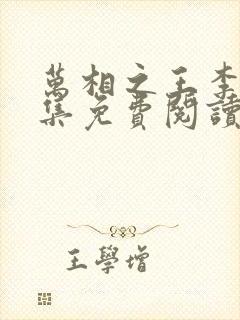 萬相之王李
集免費閱讀
王學增